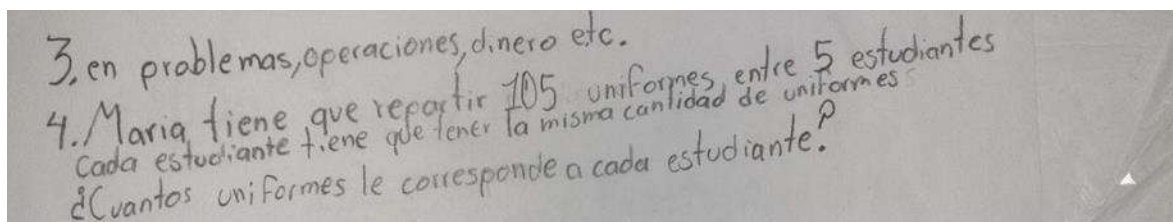 3. en problemas, operaciones, dinero etc.
4. Maria tiene que repartir 105 uniformes, entre 5 estudiantes
Cada estudiante tiene que tener la misma cantidad de uniformes
¿Cuantos uniformes le corresponde a cada estudiante?